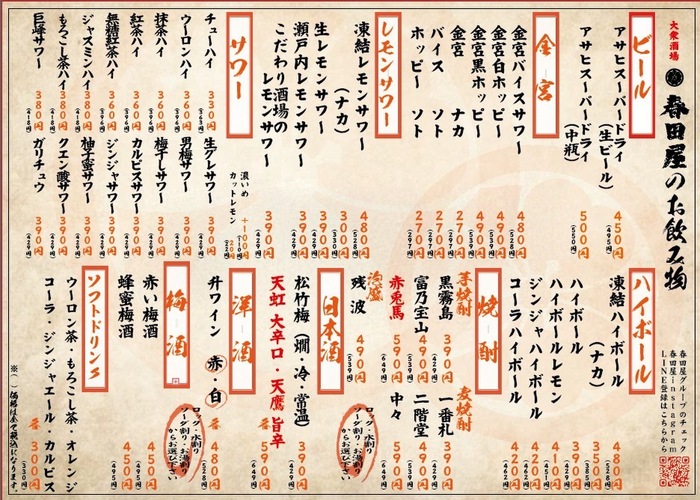 大衆酒場
春田屋のお飲み物
春田屋グループのチェック
春田屋instagram
LINE登録はこちらから
ビール
アサヒスーパードライ
(生ビール)
450円
(495円)
アサヒスーパードライ
(中瓶)
500円
(550円)
金宮
金宮バイスサワー
480円
(528円)
金宮白ホッピー
490円
(539円)
金宮黒ホッピー
490円
(539円)
金宮 ナカ
バイス ソト
270円
(297円)
ホッピー ソト
(297円)
レモンサワー
凍結レモンサワー
480円
(528円)
(ナカ)
300円
生レモンサワー
瀬戸内レモンサワー
390円
(429円)
こだわり酒場の
レモンサワー
390円
(429円)
濃いめ
+100円
カットレモン
サワー
チューハイ
330円
(363円)
ウーロンハイ
360円
(396円)
抹茶ハイ
360円
(396円)
紅茶ハイ
360円
(396円)
無糖紅茶ハイ
360円
(396円)
ジャスミンハイ
380円
(418円)
もろこし茶ハイ
380円
(418円)
巨峰サワー
380円
(418円)
生グレサワー
390円
(429円)
男梅サワー
390円
(429円)
梅干しサワー
390円
(429円)
カルピスサワー
390円
(429円)
ジンジャサワー
390円
(429円)
柚子蜜サワー
390円
(429円)
クエン酸サワー
390円
(429円)
ガリチュウ
390円
(429円)
ハイボール
凍結ハイボール
480円
(ナカ)
ハイボール
ハイボールレモン
ジンジャハイボール
コーラハイボール
焼酎
芋焼酎
黒霧島
390円
(429円)
富乃宝山
490円
(539円)
赤兎馬
590円
泡盛
残波
490円
(539円)
麦焼酎
一番札
390円
(429円)
二階堂
490円
(539円)
中々
590円
ロック・水割り
ソーダ割り・お湯割り
からお選び下さい
日本酒
松竹梅(燗・冷・常温)
390円
(429円)
天虹 大辛口・天鷹 旨辛
各590円
(649円)
洋酒
升ワイン 赤・白
各480円
(528円)
梅酒
赤い梅酒
450円
(495円)
蜂蜜梅酒
450円
(495円)
ロック・水割り
ソーダ割り・お湯割り
からお選び下さい
ソフトドリンク
ウーロン茶・もろこし茶・オレンジ
コーラ・ジンジャエール・カルピス
各300円
(330円)
※( )価格は全て税込みになります。